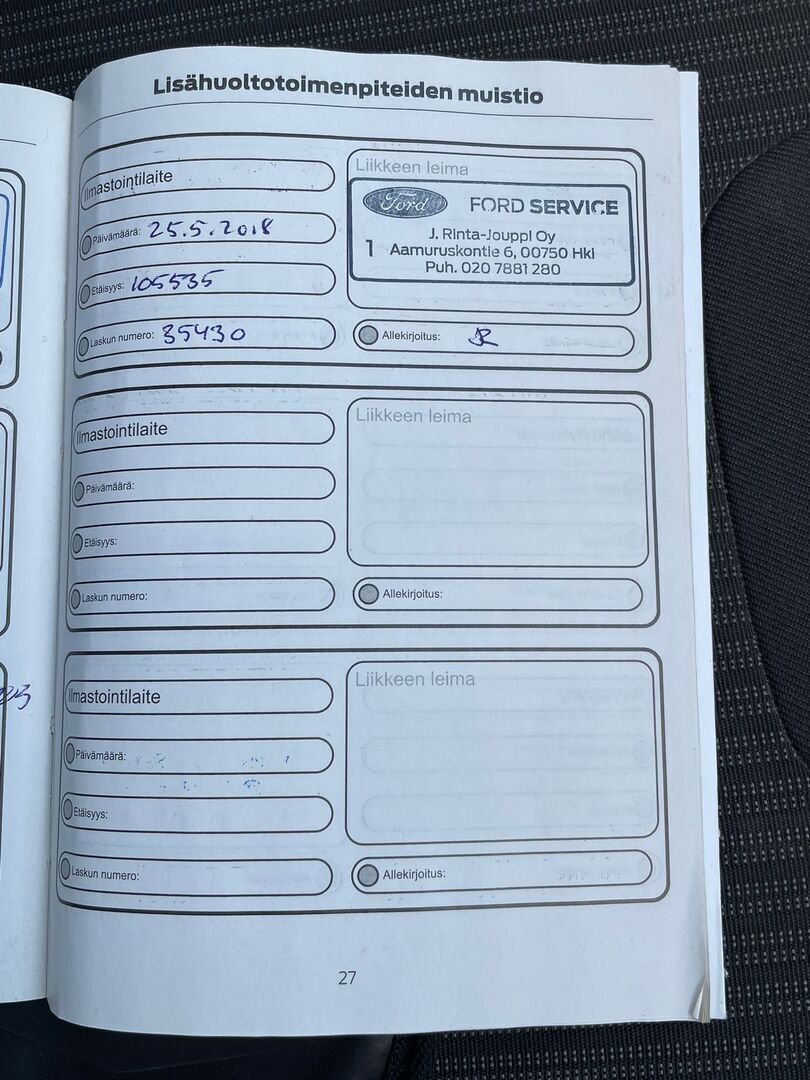 Lisähuoltotoimenpiteiden muistio
Ilmastointilaite
Päivämäärä: 25.5.2018
Etäisyys: 105535
Laskun numero: 35430
Liikkeen leima
Ford FORD SERVICE
J. Rinta-Jouppi Oy
1 Aamuruskontie 6, 00750 Hki
Puh. 020 7881 280
Allekirjoitus:
Ilmastointilaite
Päivämäärä:
Etäisyys:
Laskun numero:
Liikkeen leima
Allekirjoitus:
Ilmastointilaite
Päivämäärä:
Etäisyys:
Laskun numero:
Liikkeen leima
Allekirjoitus:
27